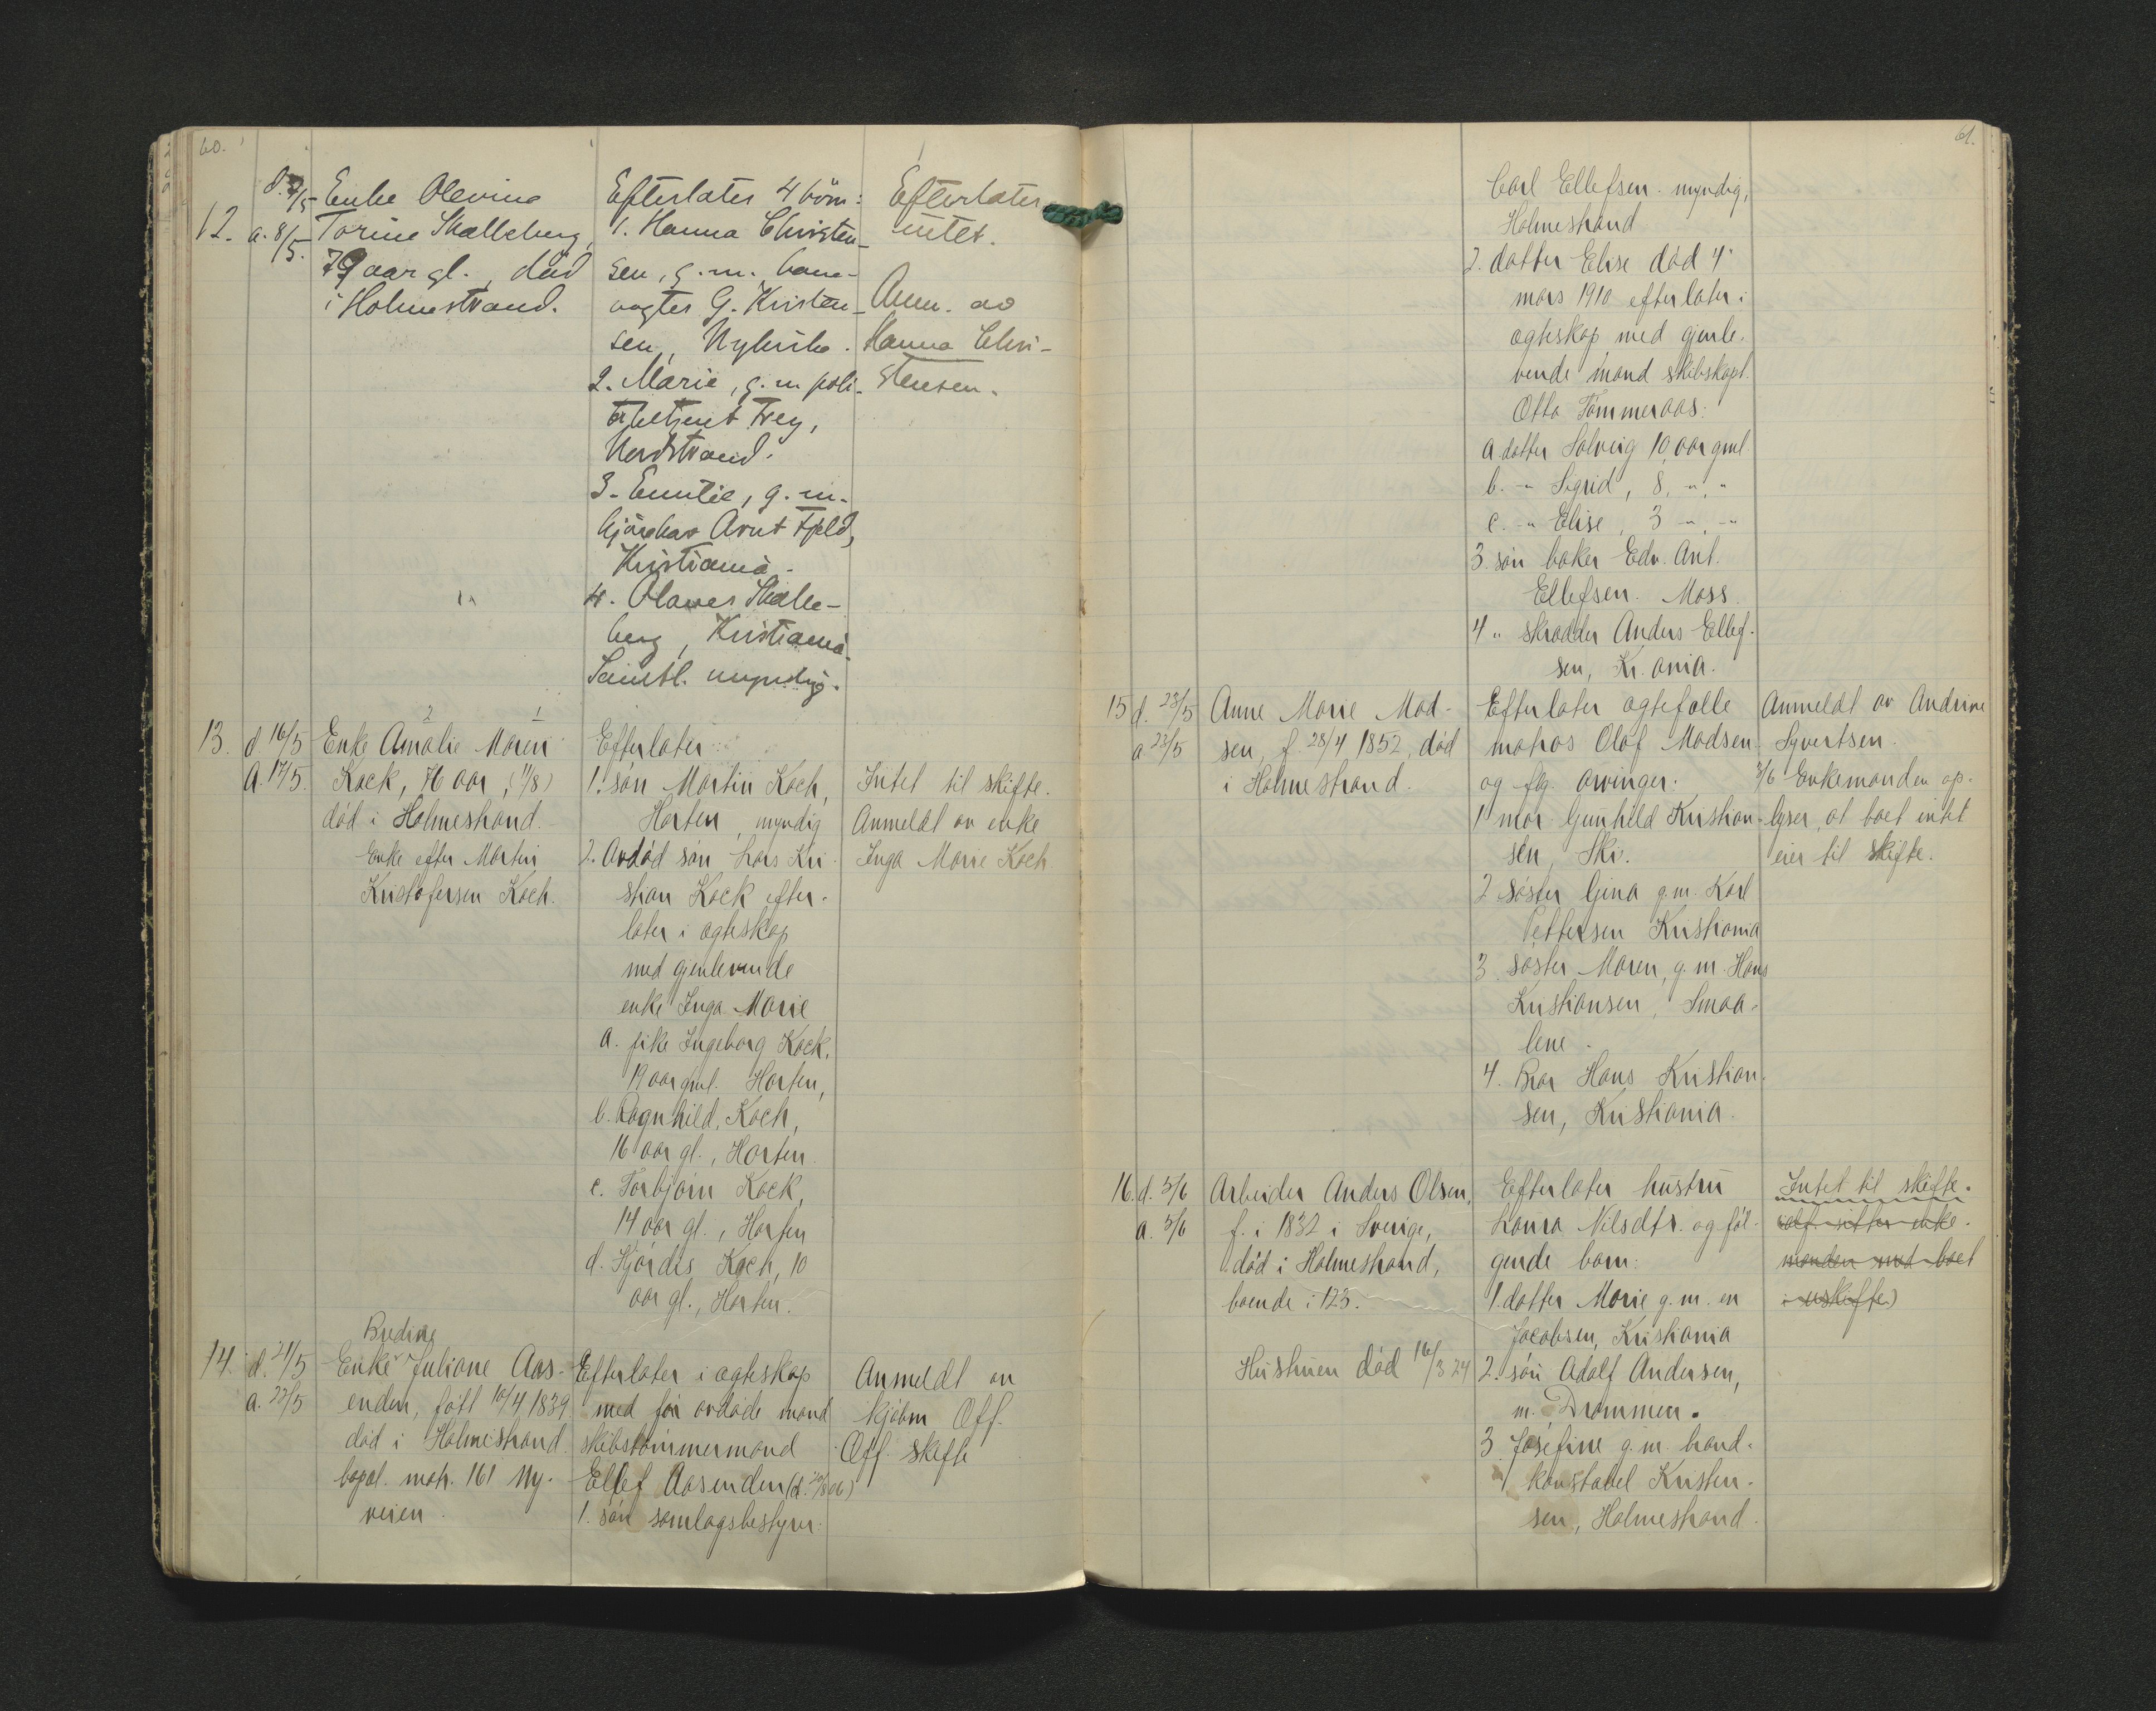 60.
12.
d. 7/5
a. 8/5.
Enke Olevine
Torine Skalleberg,
79 aar gl., död
i Holmestrand.
Efterlater 4 börn:
1. Hanna Christen-
sen, g. m. bane-
vogter G. Kristen-
sen, Nykirke.
2. Marie, g. m. poli-
tibetjent Frey,
Nordstrand.
3. Emilie, g. m.
kjörekar Arnt Fjeld,
Kristiania.
4. Olaves Skalle-
berg, Kristiania.
Samtl. myndig.
Efterlater
intet.
Anm. av
Hanna Chri-
stensen.
13.
d 16/5
A. 17/5.
2 1
Enke Amalie Maren
Kock, 76 aar, (11/8)
död i Holmestrand.
Enke efter Martin
Kristofersen Koch.
Efterlater:
1. sön Martin Koch,
Horten, myndig
2. Avdöd sön Lars Kri-
stian Kock efter-
later i egteskap
med gjenlevende
enke Inga Marie
a. pike Ingeborg Kock,
19 aar gml. Horten,
b. Ragnhild, Koch,
16 aar gl., Horten.
c. Torbjörn Kock,
14 aar gl., Horten
d. Hjördis Koch, 10
aar gl., Horten.
Intet til skifte.
Anmeldt av enke
Inga Marie Koch
14.
d. 21/5
a. 22/5
Bredine
Enke Juliane Aas-
enden, født 10/4 1839
död i Holmestrand.
bopæl. matr. 161 Ny-
veien.
Efterlater i egteskap
med før avdøde mand
skibstømmermand
Ellef Aasenden (d. 20/8 06)
1. sön samlagsbestyrer
Anmeldt av
kjøbm Off.
Off. skifte
61.
Carl Ellefsen. myndig,
Holmestrand
2. datter Elise död 4.
mars 1910 efterlater i
egteskap med gjenle-
vende mand skibskapt.
Otto Tömmeraas:
a datter Solveig 10 aar gml.
b. -"- Sigrid, 8, -"- -"-
c. -"- Elise, 3 -"- -"-
3. sön baker Edv. Ant.
Ellefsen. Moss.
4 " skrædder Anders Ellef-
sen, Kr.ania.
15
d. 23/5
a 23/5
Anne Marie Mad-
sen, f. 28/4 1852, död
i Holmestrand.
Efterlater egtefælle
matros Olaf Madsen
og flg. arvinger.
1 mor Gunhild Kristian-
sen, Ski.
2 söster Gina g.m. Karl
Pettersen Kristiania
3. söster Maren, g. m. Hans
Kristiansen, Smaa-
lene.
4. Bror Hans Kristian-
sen, Kristiania.
Anmeldt av Andrine
Syvertsen.
3/6 Enkemanden op-
lyser, at boet intet
eier til skifte.
16.
d. 5/6
a. 5/6
Arbeider Anders Olsen,
f. i 1832 i Sverige,
död i Holmestrand,
boende i 123.
Hustruen död 16/3 24
Efterlater hustru
Laura Nilsdtr. og föl-
gende barn:
1. datter Marie g. m. en
Jacobsen, Kristiania
2. sön Adolf Andersen,
m. Drammen.
3. Josefine g. m. brand-
konstabel Kristen-
sen, Holmestrand.
Intet til skifte.
sitter enke-
manden med boet
i uskifte)